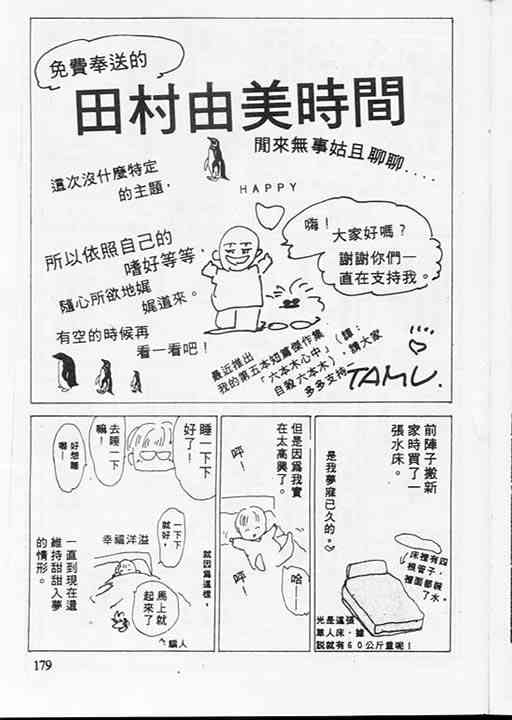 免費奉送的
田村由美時間
閒來無事姑且聊聊....
這次沒什麼特定
的主題，
HAPPY
所以依照自己的
嗜好等等，
隨心所欲地娓
娓道來。
有空的時候再
看一看吧！
嗨！
大家好嗎？
謝謝你們一
直在支持我。
最近推出
我的第五本短篇傑作集
「六本木心中」（譯：
自殺六本木），請大家
多多支持
TAMU.
前陣子搬新
家時買了一
張水床。
是我夢寐已久的。
床裡有四
根管子，
裡面都裝
了水。
光是這張
單人床，據
說就有60公斤重呢！
但是因為我實
在太高興了。
呼！
哈—
呼！
睡一下下
好了！
去睡一下
嘛！
好想睡
喔—
就因為這樣，
一下下
就好。
幸福洋溢
馬上就
起來了
騙人
一直到現在還
維持甜甜入夢
的情形。
179